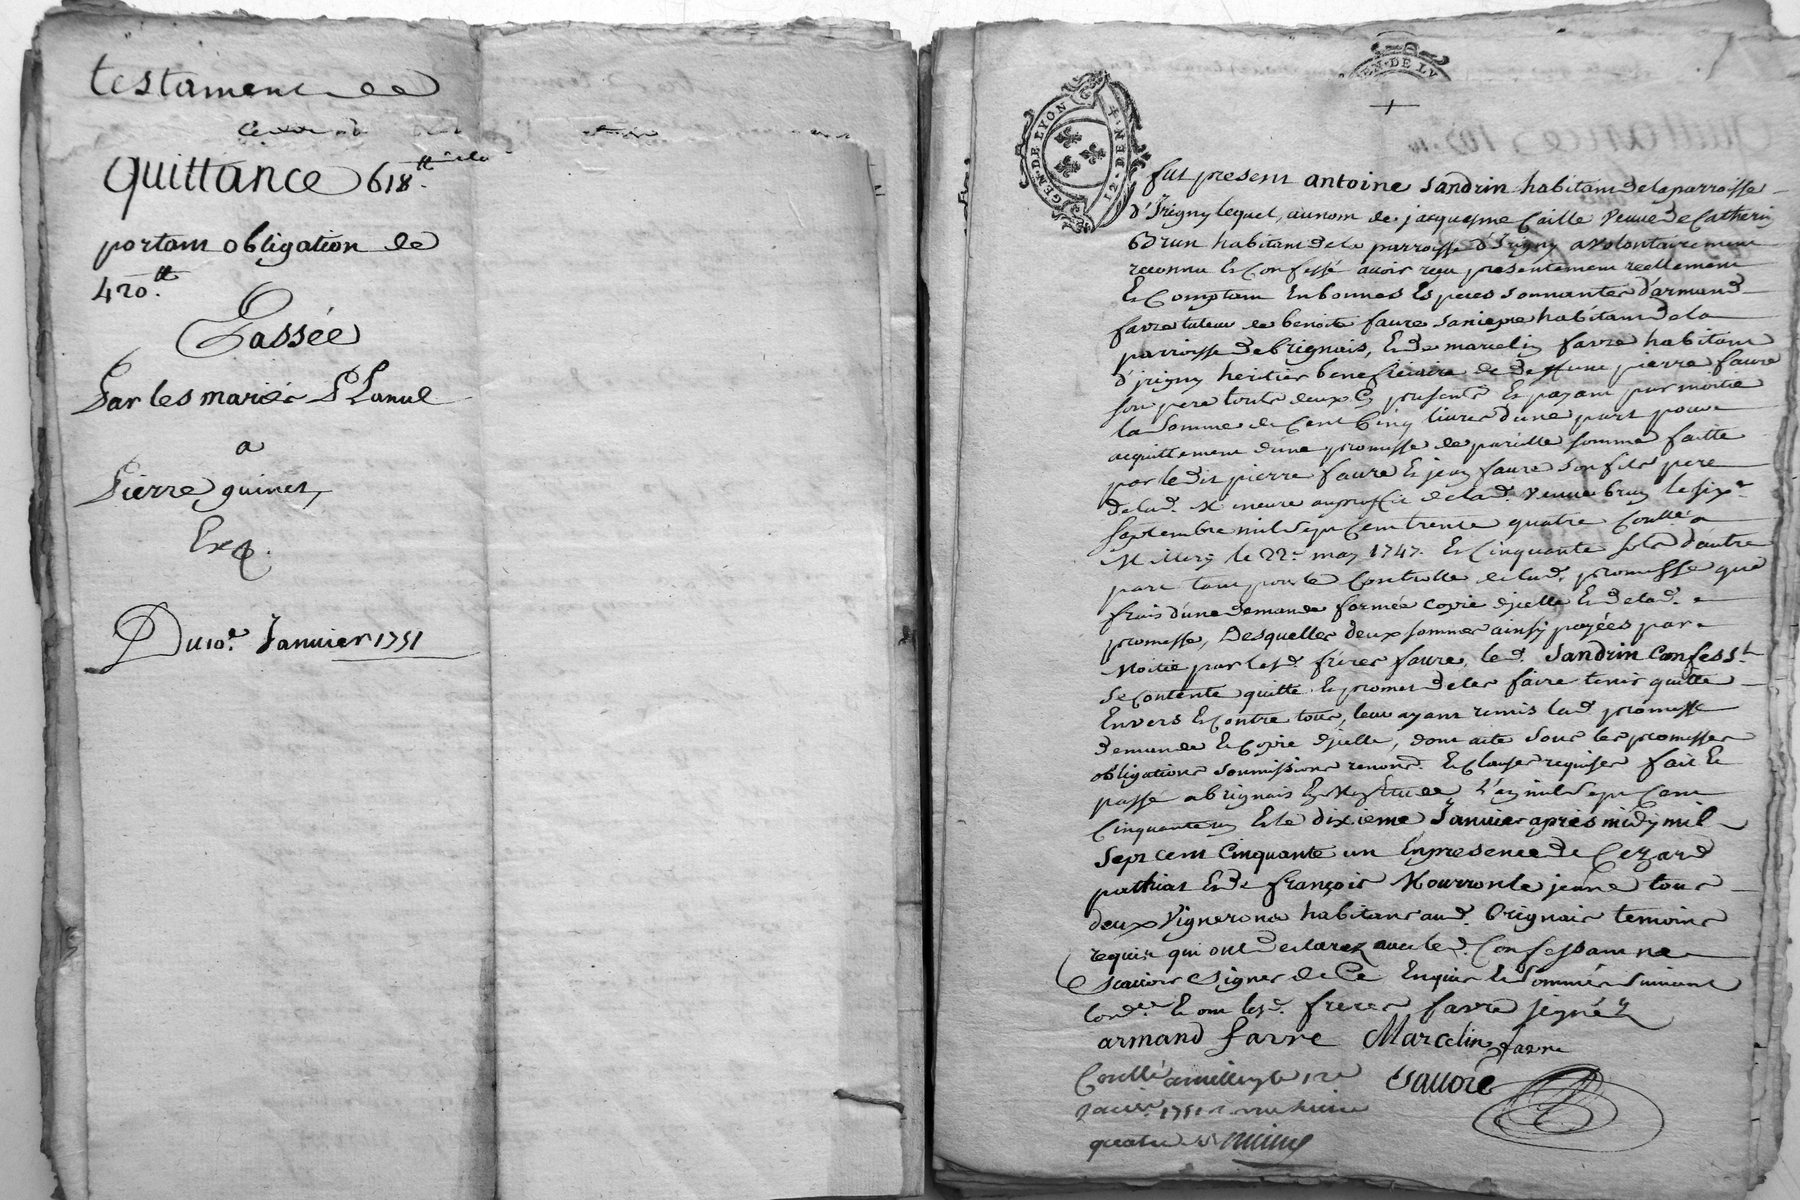 testament de
Quittance 618.tt
portant obligation de
420.tt
Passée
Par les mariés
a
Pierre guinet,
Exp.
Du 10.e Janvier 1751
GEN. DE LYON
12. DEN
EN. DE LY
fut present antoine Sandrin habitant de la parroisse
d'Irigny lequel, au nom de jacquesme Caille veuve de Catherin
Brun habitant de la parroisse d'Irigny a volontairement
reconnu Et Confessé avoir reçu presentement reellement
Et Comptant En bonnes Especes sonnantes d'armand
favre tuteur de benoite faure sa niepce habitant de la
parroisse de brignais, Et de marcelin favre habitant
d'jrigny heritier beneficiaire de deffunt pierre faure
son pere touts deux Cy presents Et payant par moitié
la somme de Cent Cinq livres d'une part pour
acquittement d'une promesse de pareille somme faitte
par ledit pierre faure Et jean faure son fils pere
de lad. Mineure au proffit de lad. veuve brun le six
Septembre mil Sept Cent trente quatre Coull.é a
Millery le 22.e may 1747. Et Cinquante sols d'autre
part tant pour le Controlle de lad. promesse que
frais d'une demande formée copie d'jcelle Et de lad.
promesse, Desquelles deux sommes ainsy payées par
Moitié par lesd. fréres faure, led. Sandrin Confess.t
Se contente quitte Et promet de les faire tenir quitte
Envers Et Contre tous, leur ayant remis lad promesse
demande Et Copie d'jcelle, dont acte sous les promesses
obligations soumissions renond. Et Clauses requises fait Et
passé a brignais En Notre Etude L'an mil Sept Cent
Cinquante un Et le dixieme Janvier après midy mil
Sept cent Cinquante un En presence de Cezard
pathiat Et de françois Mourron le jeune tous
deux Vignerons habitans aud. Brignais temoins
requis qui ont declarez avec led. Confessant ne
Scavoir Signer de Ce Enquis Et Sommés Suivant
lord.ce Et ont lesd. freres favre signéz
armand favre Marcelin favre
Coullé a millery le 12e
Janv.r 1751